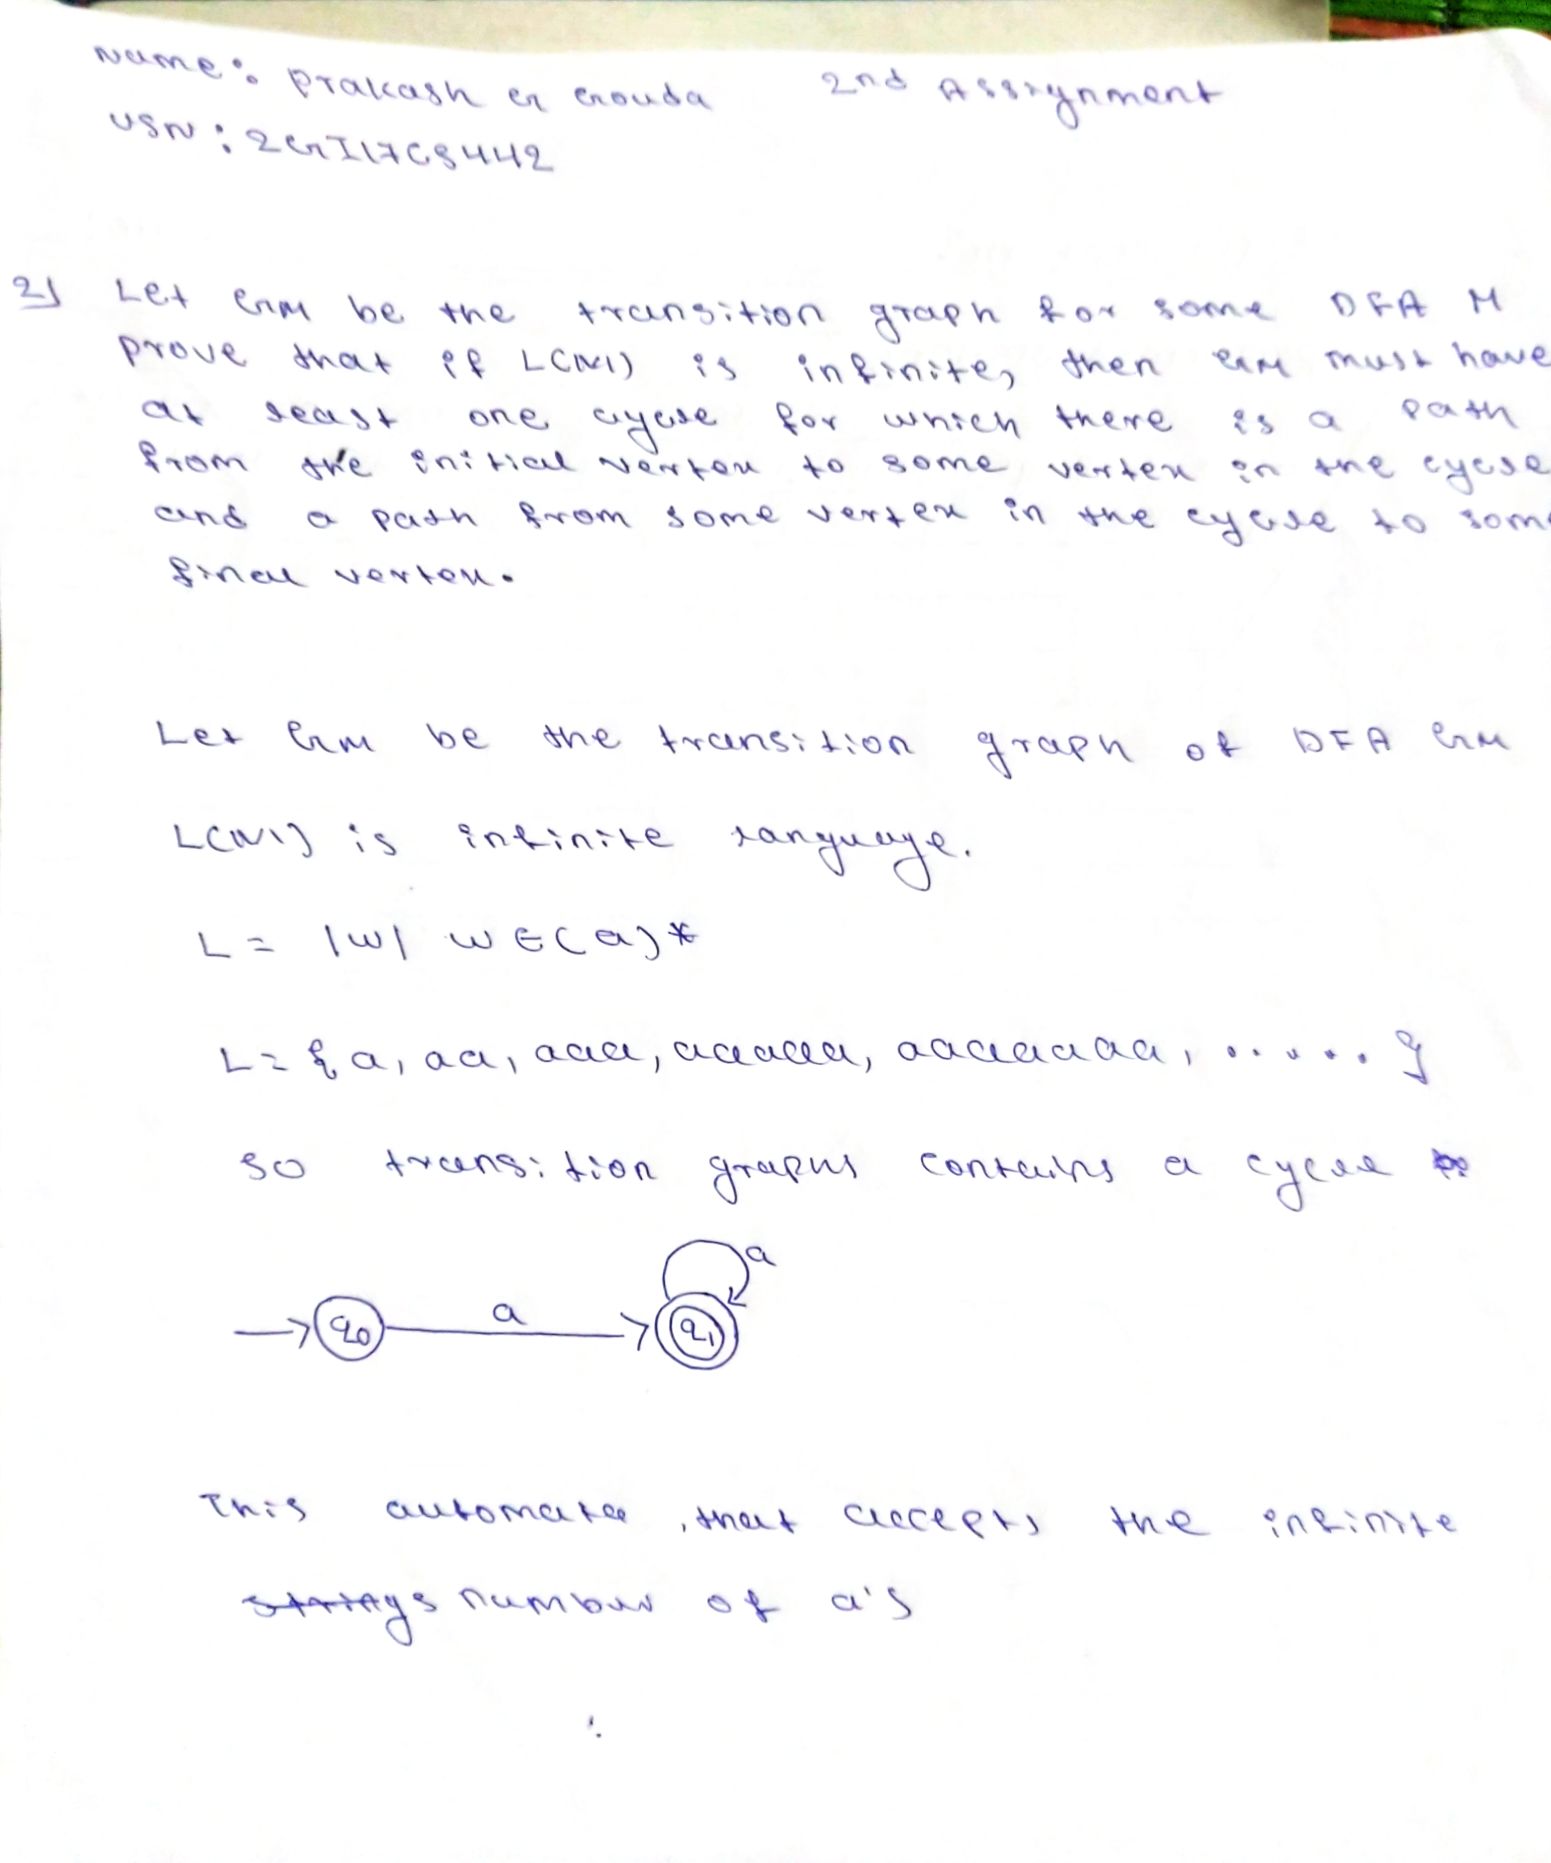 Name: Prakash G Gouda 2nd Assignment
USN: 2GI17CS442
2) Let GM be the transition graph for some DFA M
prove that if L(M) is infinite, then GM must have
at least one cycle for which there is a path
from the initial vertex to some vertex in the cycle
and a path from some vertex in the cycle to som
final vertex.
Let GM be the transition graph of DFA GM
L(M) is infinite language.
L = |w| w ∈ (a)*
L = {a, aa, aaa, aaaaaa, aaaaaaaa, ......}
so transition graphs contains a cycle
a
q0 a q1
This automata, that accepts the infinite
strings number of a's